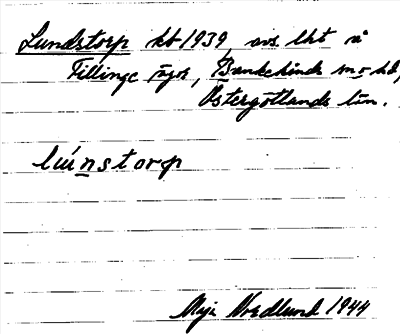 Lundstorp kb 1939, avs. lht å
Fillinge ägor, Bankekinds sn o hd,
Östergötlands län.
lúnstorp
Maja Nordlund 1944